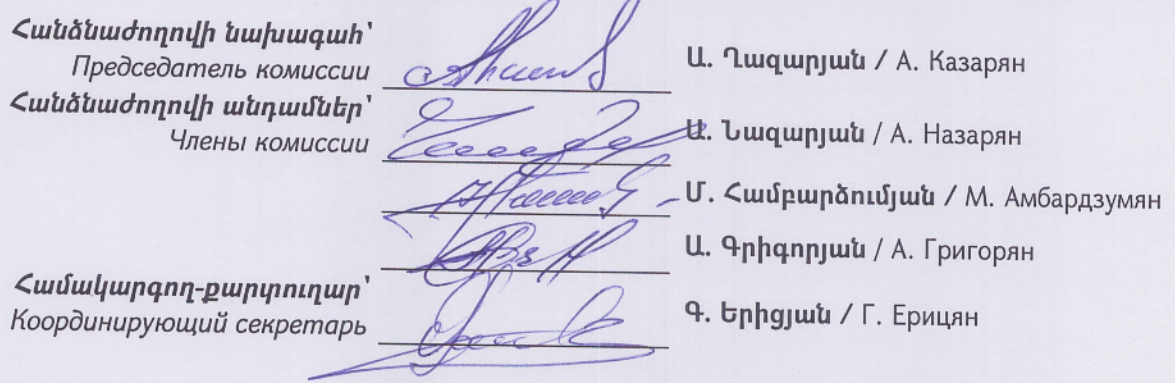 Հանձնաժողովի նախագահ՝
Председатель комиссии
Ա. Ղազարյան / А. Казарян
Հանձնաժողովի անդամներ՝
Члены комиссии
Ա. Նազարյան / А. Назарян
Մ. Համբարձումյան / М. Амбардзумян
Ա. Գրիգորյան / А. Григорян
Համակարգող-քարտուղար՝
Координирующий секретарь
Գ. Երիցյան / Г. Ерицян